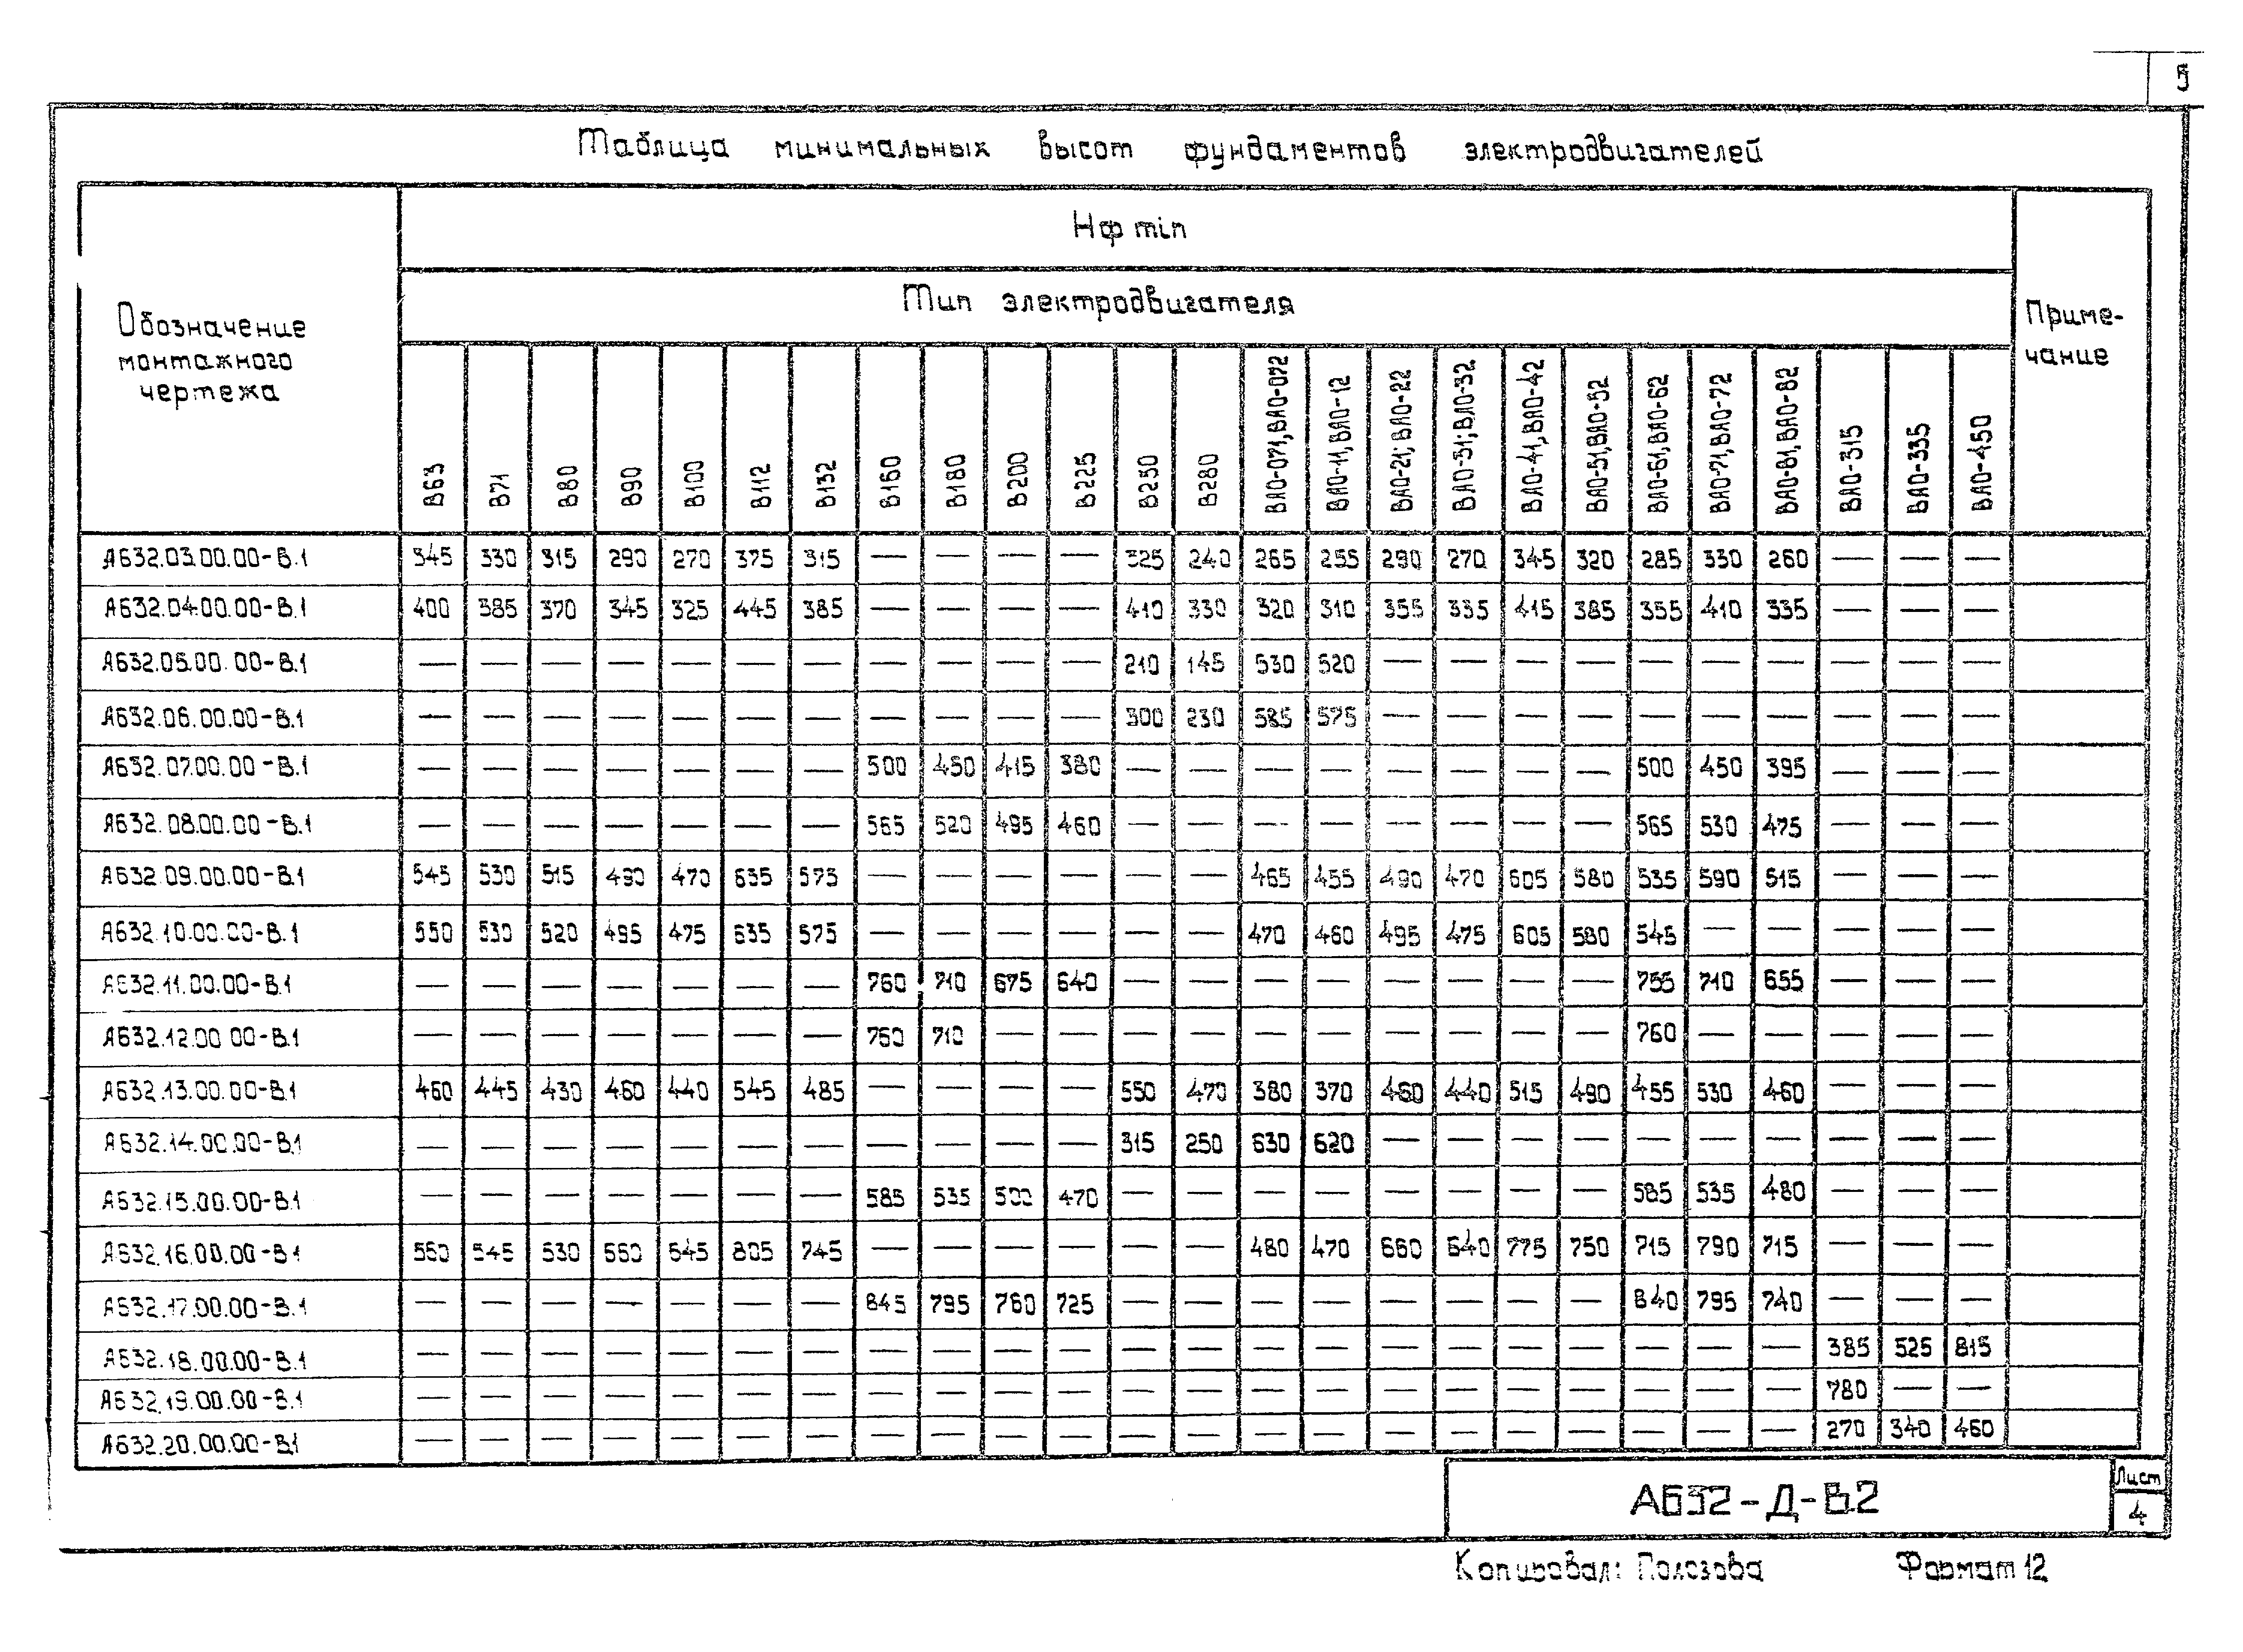 5
Таблица минимальных высот фундаментов электродвигателей
Обозначение монтажного чертежа
Нф min
Тип электродвигателя
Приме-чание
В63 В71 В80 В90 В100 В112 В132 В160 В180 В200 В225 В250 В280 ВАО-071,ВАО-072 ВАО-11,ВАО-12 ВАО-21;ВАО-22 ВАО-31;ВАО-32 ВАО-41,ВАО-42 ВАО-51,ВАО-52 ВАО-61,ВАО-62 ВАО-71,ВАО-72 ВАО-81,ВАО-82 ВАО-315 ВАО-335 ВАО-450
А632.03.00.00-В.1 345 330 315 290 270 375 315 — — — — 325 240 265 255 290 270 345 320 285 330 260 — — —
А632.04.00.00-В.1 400 385 370 345 325 445 385 — — — — 410 330 320 310 355 335 415 385 355 410 335 — — —
А632.05.00.00-В.1 — — — — — — — — — — — 210 145 530 520 — — — — — — — — — —
А632.06.00.00-В.1 — — — — — — — — — — — 300 230 585 575 — — — — — — — — — —
А632.07.00.00-В.1 — — — — — — — 500 450 415 380 — — — — — — — — 500 450 395 — — —
А632.08.00.00-В.1 — — — — — — — 565 520 495 460 — — — — — — — — 565 530 475 — — —
А632.09.00.00-В.1 545 530 515 490 470 635 575 — — — — — — 465 455 490 470 605 580 535 590 515 — — —
А632.10.00.00-В.1 550 530 520 495 475 635 575 — — — — — — 470 460 495 475 605 580 545 — — — — —
А632.11.00.00-В.1 — — — — — — — 760 710 675 640 — — — — — — — — 755 710 655 — — —
А632.12.00 00-В.1 — — — — — — — 760 710 — — — — — — — — — — 760 — — — — —
А632.13.00.00-В.1 460 445 430 460 440 545 485 — — — — 550 470 380 370 460 440 515 490 455 530 460 — — —
А632.14.00.00-В.1 — — — — — — — — — — — 315 250 630 620 — — — — — — — — — —
А632.15.00.00-В.1 — — — — — — — 585 535 500 470 — — — — — — — — 585 535 480 — — —
А632.16.00.00-В.1 560 545 530 660 645 805 745 — — — — — — 480 470 660 640 775 750 715 790 715 — — —
А632.17.00.00-В.1 — — — — — — — 845 795 760 725 — — — — — — — — 840 795 740 — — —
А632.18.00.00-В.1 — — — — — — — — — — — — — — — — — — — — — — 385 525 815
А632.19.00.00-В.1 — — — — — — — — — — — — — — — — — — — — — — 780 — —
А632.20.00.00-В.1 — — — — — — — — — — — — — — — — — — — — — — 270 340 460
А632-Д-В.2
Лист
4
Копировал: Полозова Формат 12